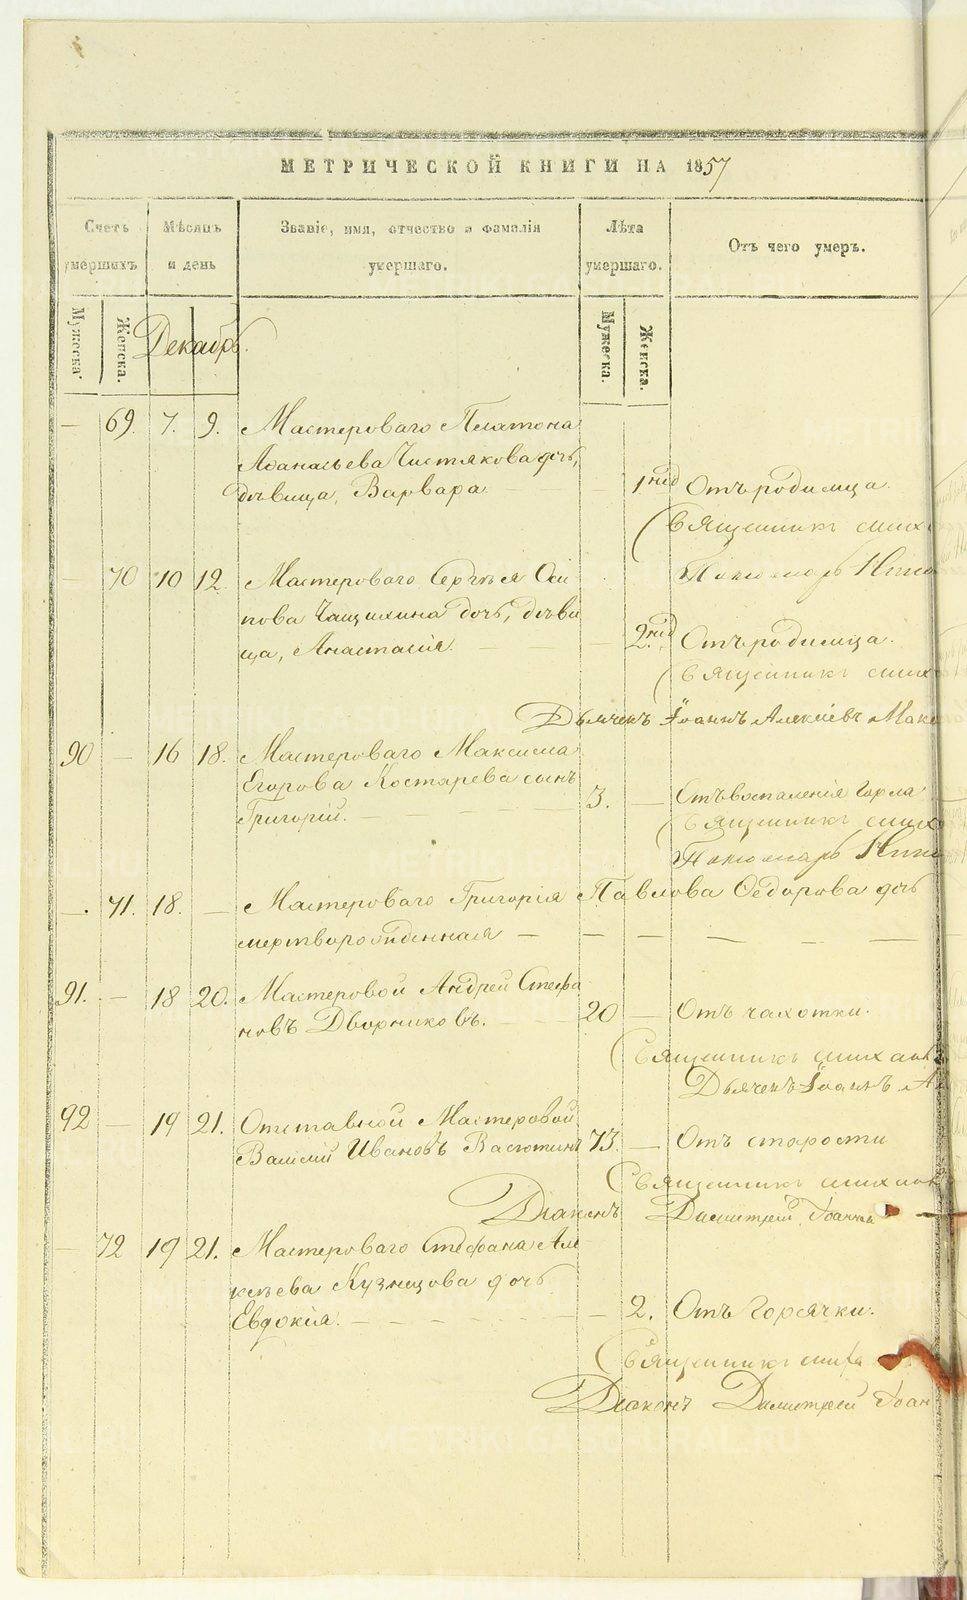 МЕТРИЧЕСКОЙ КНИГИ НА 1857
Счетъ умершихъ Мѣсяцъ и день Званіе, имя, отчество и фамилія умершаго. Лѣта умершаго. Отъ чего умеръ.
Мужеска Женска. Декабрь. Мужеска. Женска.
— 69. 7. 9. Мастероваго Платона
Аѳанасьева Чистякова дочь,
дѣвица, Варвара. — 1 нед Отъ родимца.
Священникъ Мих
— 70 10 12 Мастероваго Сергѣя Оси Пономарь
пова Чащихина дочь, дѣви
ца, Анастасія. — 2. нед Отъ родимца.
Священникъ Мих
Дьячекъ Іоаннъ Алексѣевъ Мака
90 — 16 18. Мастероваго Максима
Егорова Костарева сынъ
Григорій. — 3. — Отъ воспаленія горла
Священникъ Мих
Пономарь
— 71. 18. — Мастероваго Григорія Павлова Ѳедорова дочь
мертворожденная — — — — —
91. — 18 20. Мастеровой Андрей Стефа
новъ Дворниковъ. — 20 — Отъ чахотки.
Священникъ Миха
Дьячекъ Іоаннъ А
92 — 19 21. Отставной Мастеровой
Василій Ивановъ Васютинъ 73. — Отъ старости
Священникъ Миха
Діаконъ Димитрій Іоанн
— 72 19 21. Мастероваго Стефана Але
ксѣева Кузнецова дочь
Евдокія. — 2. Отъ Горячки.
Священникъ Миха
Діаконъ Димитрій Іоан
METRIKI.GASO-URAL.RU